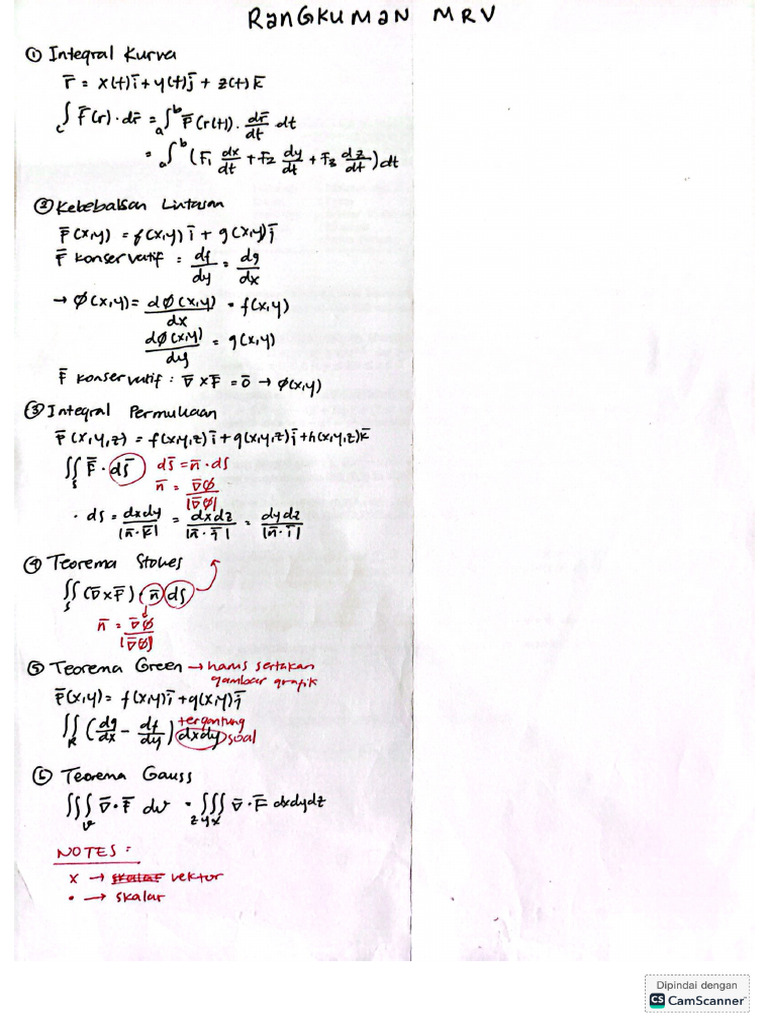 RANGKUMAN MRV
① Integral Kurva
r̄ = x(t)ī + y(t)j̄ + z(t)k̄
∫c F̄(r) · dr̄ = a∫b F̄(r(t)) · dr̄/dt dt
= a∫b (F₁ dx/dt + F₂ dy/dt + F₃ dz/dt) dt
② Kebebasan Lintasan
F̄(x,y) = f(x,y) ī + g(x,y) j̄
F̄ konservatif : df/dy = dg/dx
→ Ø(x,y) = dØ(x,y)/dx = f(x,y)
dØ(x,y)/dy = g(x,y)
F̄ konservatif : ∇̄ x F̄ = ō → Ø(x,y)
③ Integral Permukaan
F̄(x,y,z) = f(x,y,z) ī + g(x,y,z) j̄ + h(x,y,z) k̄
∬s F̄ · ds̄ ds̄ = n̄ · ds
n̄ = ∇̄Ø/|∇̄Ø|
· ds = dxdy/|n̄·k̄| = dxdz/|n̄·j̄| = dydz/|n̄·ī|
④ Teorema Stokes
∬s (∇̄ x F̄) · n̄ ds
n̄ = ∇̄Ø/|∇̄Ø|
⑤ Teorema Green → harus sertakan
gambar grafik
F̄(x,y) = f(x,y) ī + g(x,y) j̄
∬R (dg/dx - df/dy) dxdy tergantung
soal
⑥ Teorema Gauss
∭v ∇̄ · F̄ dv = ∭zyx ∇̄ · F̄ dxdydz
NOTES :
x → skalar vektor
• → skalar
Dipindai dengan
CS CamScanner